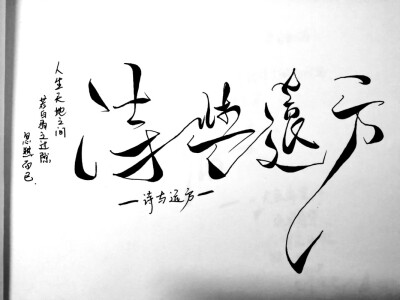 诗与远方
人生天地之间
若白驹之过隙
忽然而已.
—诗与远方—